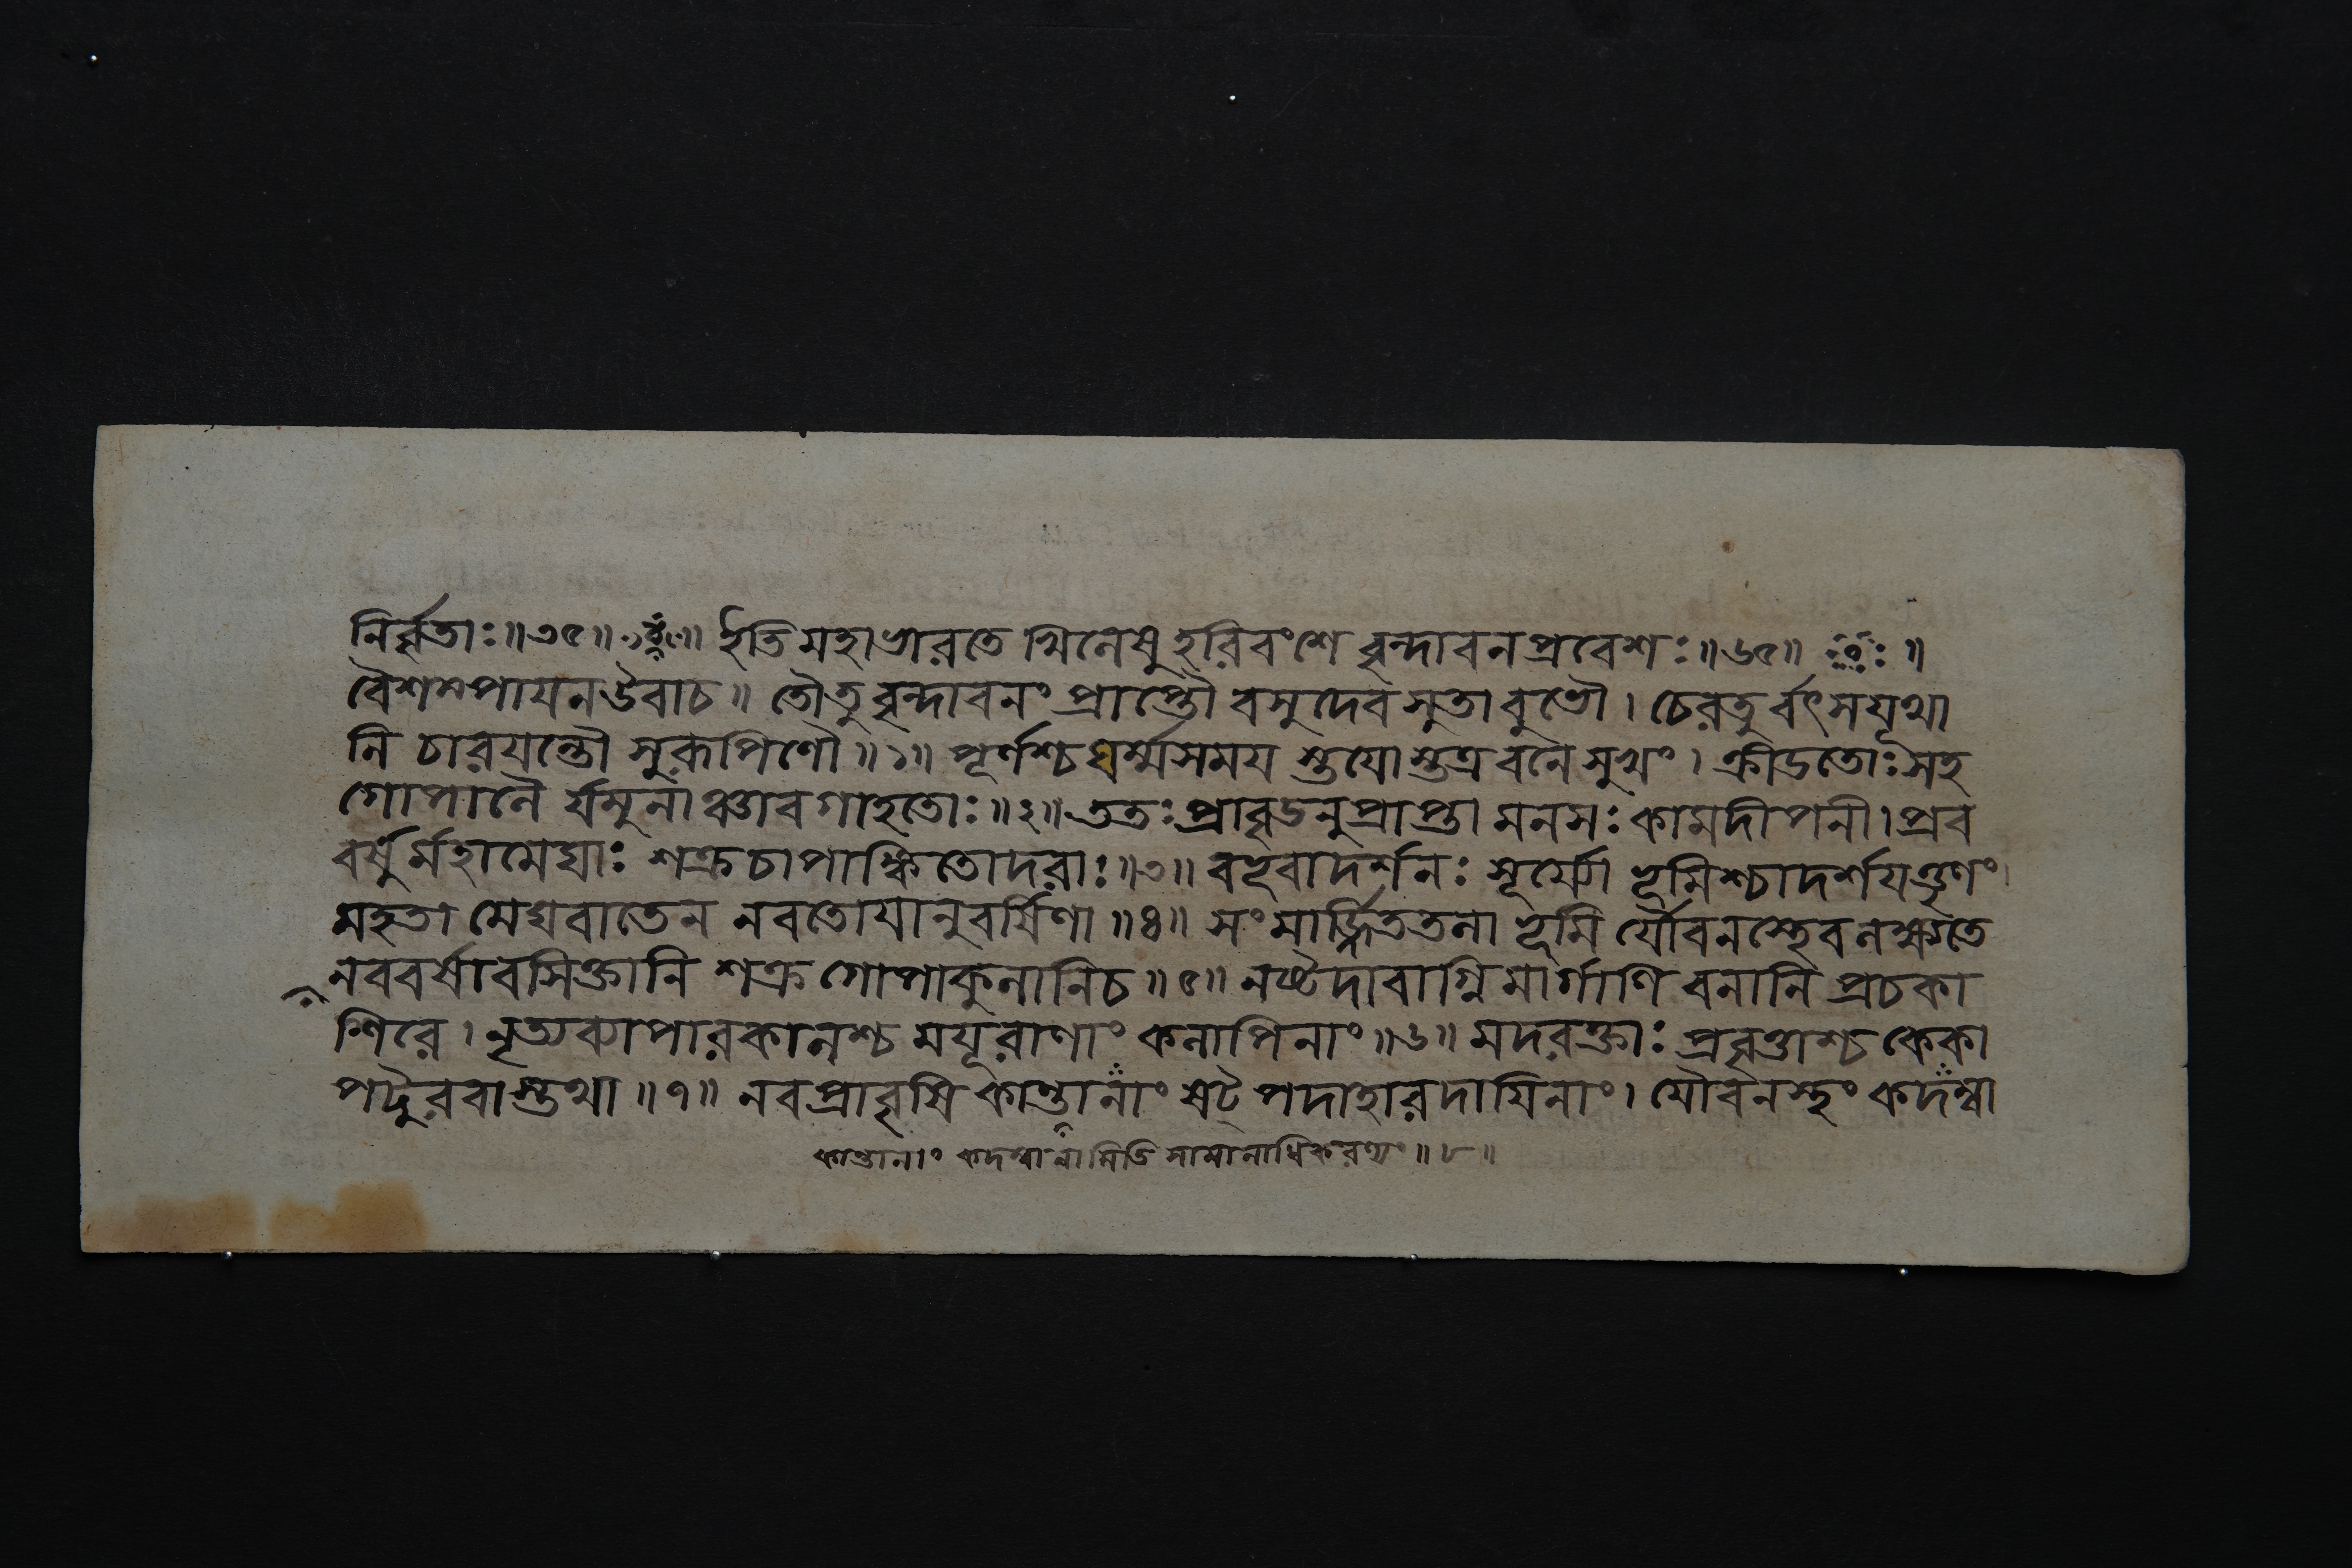 নির্বৃতাঃ॥৩৫॥ ইতি মহাভারতে খিলেষু হরিবংশে বৃন্দাবনপ্রবেশঃ॥৬৫॥
বৈশম্পায়ন উবাচ॥ তৌ তু বৃন্দাবনং প্রাপ্তৌ বসুদেবসুতাবুভৌ। চেরতুর্বৎসযূথা
নি চারয়ন্তৌ সুরূপিণৌ॥১॥ পূর্ণশ্চ ঘর্ম্মসময় স্তয়োস্তত্র বনে সুখং। ক্রীডতোঃ সহ
গোপালৈ র্যমুনাঞ্চাবগাহতোঃ॥২॥ ততঃ প্রাবৃডনুপ্রাপ্তা মনসঃ কামদীপনী। প্রব
বর্ষুর্মহামেঘাঃ শক্রচাপাঙ্কিতোদরাঃ॥৩॥ বভূবাদর্শনঃ সূর্য্যো ভূমিশ্চাদর্শয়ত্তৃণং।
মহতা মেঘবাতেন নবতোয়ানুবর্ষিণা॥৪॥ সংমার্জ্জিততলা ভূমি র্যৌবনস্থেব লক্ষ্যতে
নববর্ষাবসিক্তানি শক্রগোপাকুলানি চ॥৫॥ নষ্টদাবাগ্নিমার্গাণি বনানি প্রচকা
শিরে। নৃত্যব্যাপারকালশ্চ ময়ূরাণাং কলাপিনাং॥৬॥ মদরক্তাঃ প্রবৃত্তাশ্চ কেকা
পটুরবাস্তথা॥৭॥ নবপ্রাবৃষি কান্তানাং ষট্পদাহারদায়িনাং। যৌবনস্থং কদম্বা
কান্তানাং কদম্বানামিতি সামানাধিকরণ্যং॥৮॥